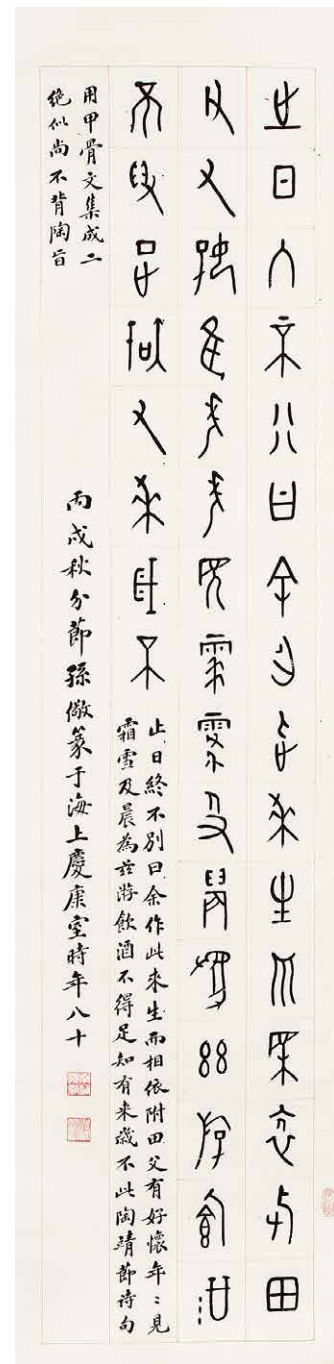 止日終不別曰余作此來生而相依附田
父有好懷年年見霜雪及晨為茲將飲酒
不得足知有來歲不
止日終不別曰余作此來生而相依附田父有好懷年〻見
霜雪及晨為茲將飲酒不得足知有来歲不此陶靖節詩句
用甲骨文集成二
絕似尚不背陶旨
丙戌秋分節孫儆篆于海上慶康室時年八十